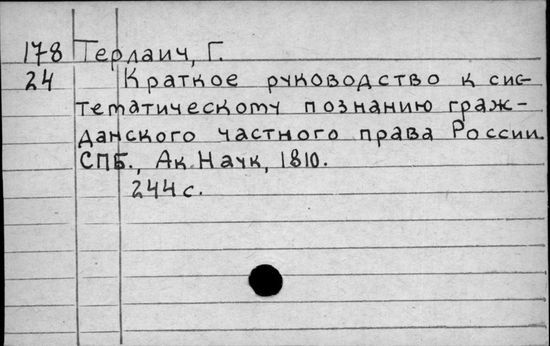 178 Терлаич, Г.
24 Краткое руководство к сис-
тематическому познанию граж-
данского частного права России.
СПБ., Ак. Наук, 1810.
244 с.